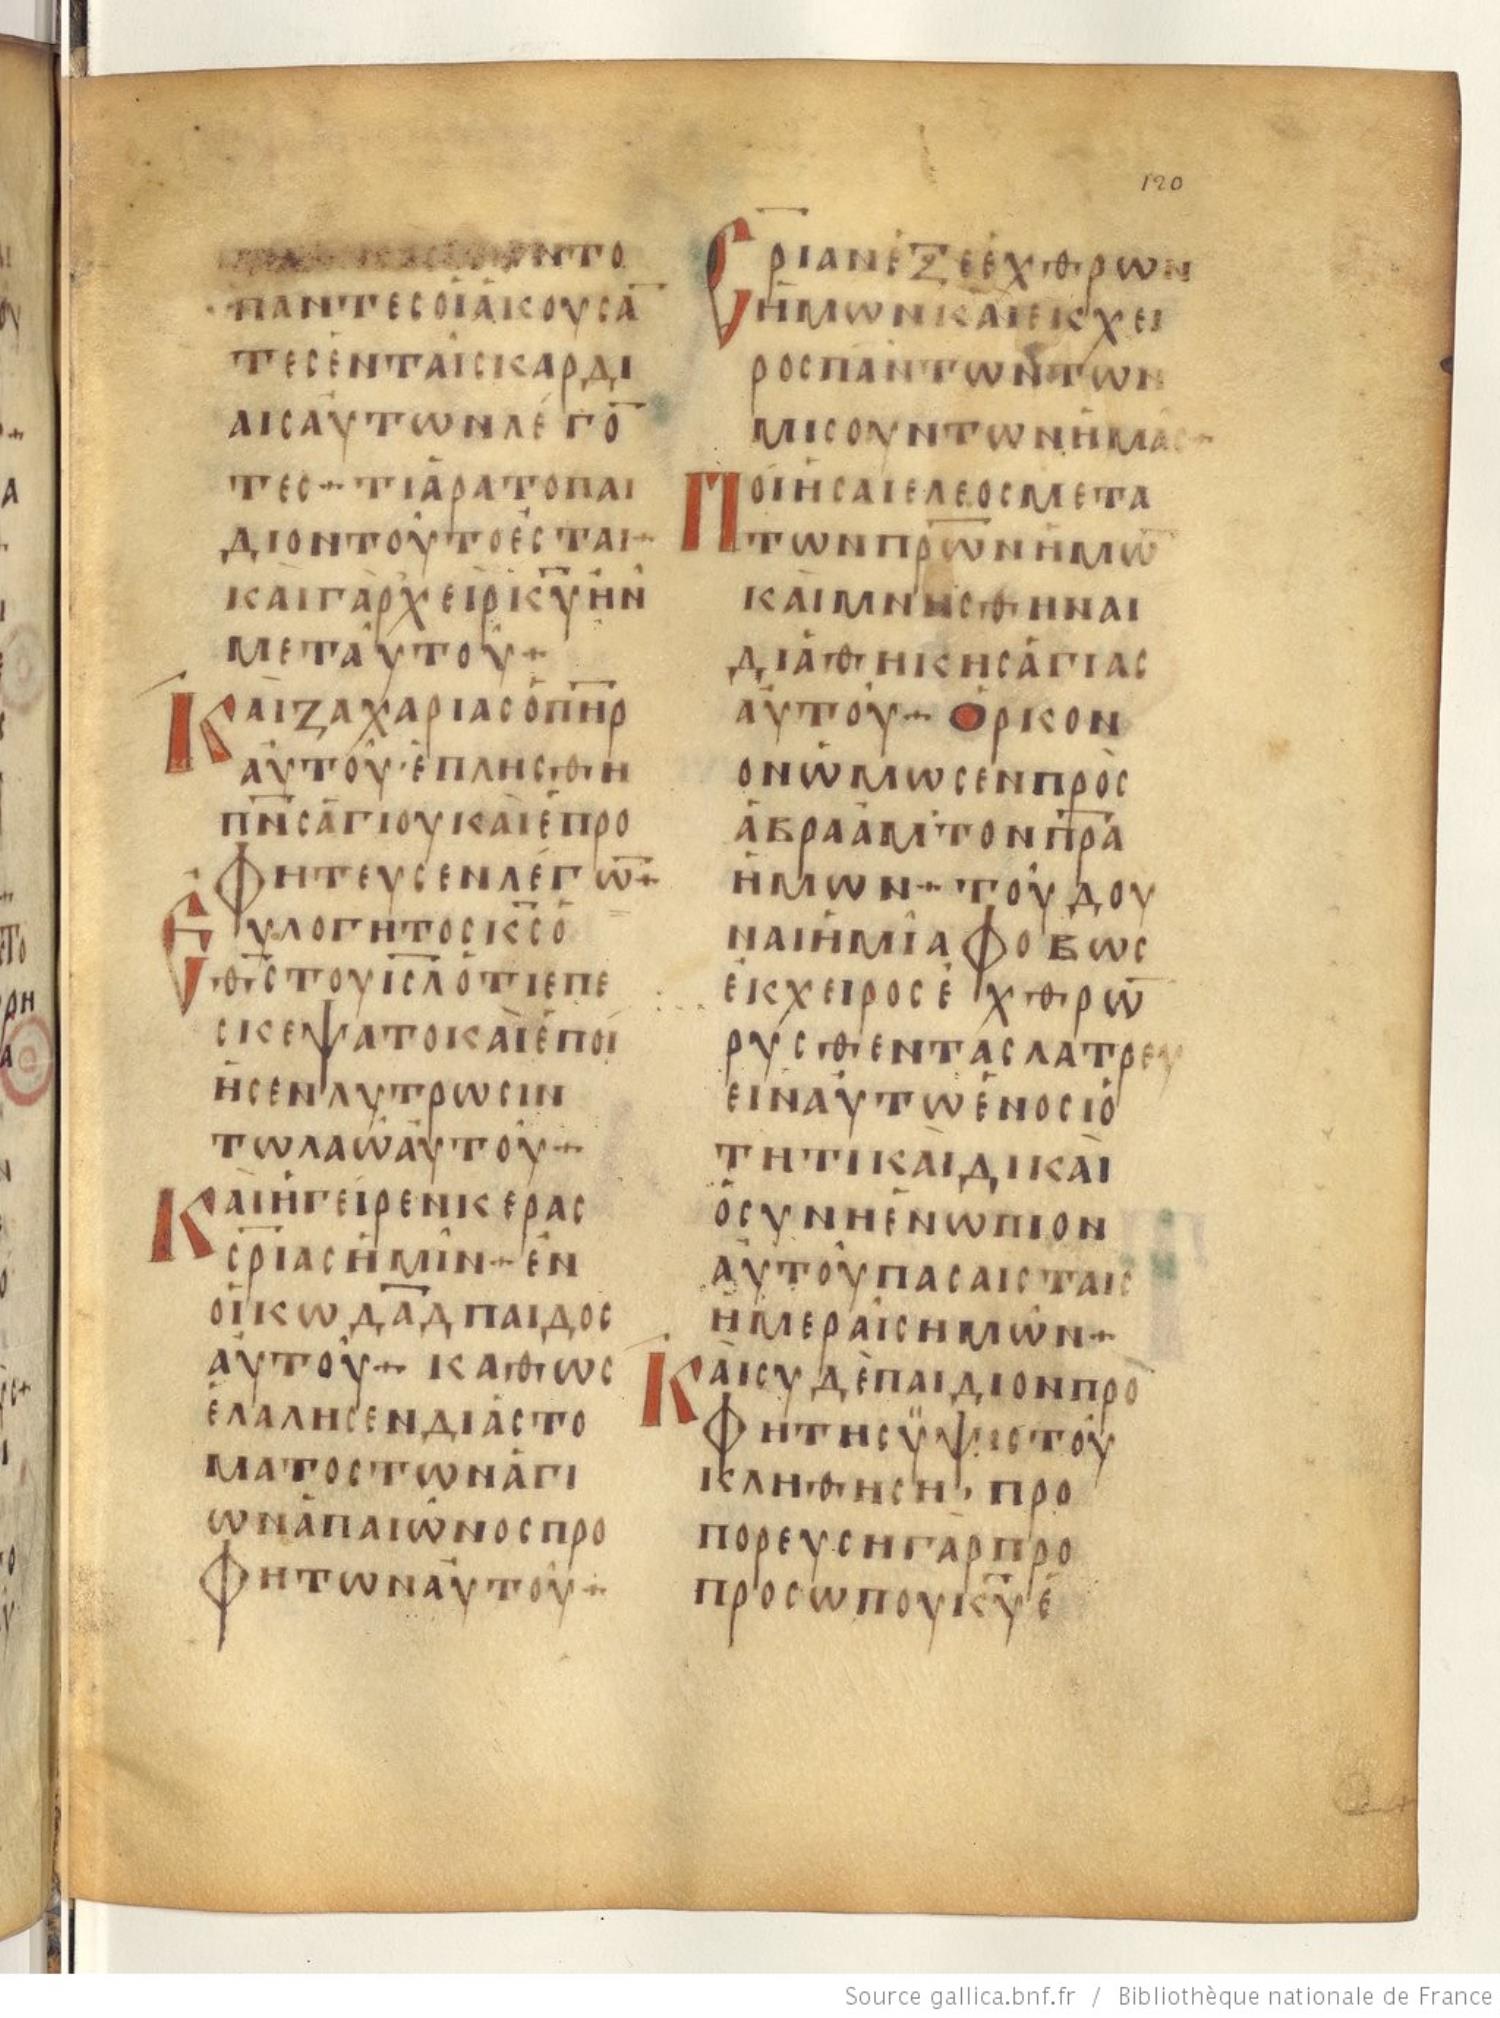 120
ΝΤΟ
ΠΑΝΤΕСΟΙΑΚΟΥСΑ̅
ΤΕСΕΝΤΑΙСΚΑΡΔΙ
ΑΙСΑΥΤΩΝΛΕΓΟ̅
ΤΕС+ΤΙΑΡΑΤΟΠΑΙ
ΔΙΟΝΤΟΥΤΟΕСΤΑΙ+
ΚΑΙΓΑΡΧΕΙΡΚ̅Υ̅ΗΝ
ΜΕΤΑΥΤΟΥ+
ΚΑΙΖΑΧΑΡΙΑСΟΠ̅Η̅Ρ̅
ΑΥΤΟΥ·ΕΠΛΗСΘΗ
Π̅Ν̅С̅ΑΓΙΟΥΚΑΙΕΠΡΟ
ΦΗΤΕΥСΕΝΛΕΓΩ̅+
ΕΥΛΟΓΗΤΟСΚ̅С̅Ο
Θ̅С̅ΤΟΥΙ̅С̅Λ̅ΟΤΙΕΠΕ
СΚΕΨΑΤΟΚΑΙΕΠΟΙ
ΗСΕΝΛΥΤΡΩСΙΝ
ΤΩΛΑΩΑΥΤΟΥ+
ΚΑΙΗΓΕΙΡΕΝΚΕΡΑС
С̅Ρ̅ΙΑСΗΜΙΝ+ΕΝ
ΟΙΚΩΔ̅Α̅Δ̅ΠΑΙΔΟС
ΑΥΤΟΥ+ ΚΑΘΩС
ΕΛΑΛΗСΕΝΔΙΑСΤΟ
ΜΑΤΟСΤΩΝΑΓΙ
ΩΝΑΠΑΙΩΝΟСΠΡΟ
ΦΗΤΩΝΑΥΤΟΥ+
С̅Ρ̅ΙΑΝΕΞΕΧΘΡΩΝ
ΗΜΩΝΚΑΙΕΚΧΕΙ
ΡΟСΠΑΝΤΩΝΤΩΝ
ΜΙСΟΥΝΤΩΝΗΜΑС+
ΠΟΙΗСΑΙΕΛΕΟСΜΕΤΑ
ΤΩΝΠ̅Ρ̅Ω̅Ν̅ΗΜΩ̅
ΚΑΙΜΝΗСΘΗΝΑΙ
ΔΙΑΘΗΚΗСΑΓΙΑС
ΑΥΤΟΥ+ ΟΡΚΟΝ
ΟΝΩΜΩСΕΝΠΡΟС
ΑΒΡΑΑΜΤΟΝΠ̅Ρ̅Α̅
ΗΜΩΝ+ ΤΟΥΔΟΥ
ΝΑΙΗΜΙΑΦΟΒΩС
ΕΚΧΕΙΡΟСΕΧΘΡΩ̅
ΡΥСΘΕΝΤΑСΛΑΤΡΕΥ
ΕΙΝΑΥΤΩΕΝΟСΙΟ
ΤΗΤΙΚΑΙΔΙΚΑΙ
ΟСΥΝΗΕΝΩΠΙΟΝ
ΑΥΤΟΥΠΑСΑΙСΤΑΙС
ΗΜΕΡΑΙСΗΜΩΝ+
ΚΑΙСΥΔΕΠΑΙΔΙΟΝΠΡΟ
ΦΗΤΗСΫΨΙСΤΟΥ
ΚΛΗΘΗСΗ, ΠΡΟ
ΠΟΡΕΥСΗΓΑΡΠΡΟ
ΠΡΟСΩΠΟΥΚ̅Υ̅Ε
Source gallica.bnf.fr / Bibliothèque nationale de France